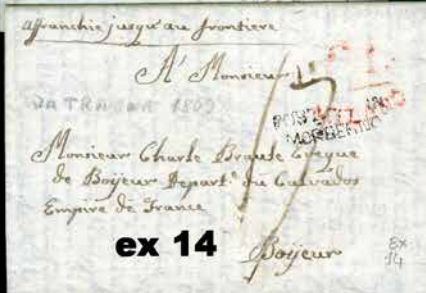 affranchie jusqu'au frontiere
A' Monsieur
DA TRAUNIK 1809
Monsieur Charle Braulte Eveque
de Boyeur Depart.t du Calvados
Empire de France
Boyeur
ex 14
EX
14